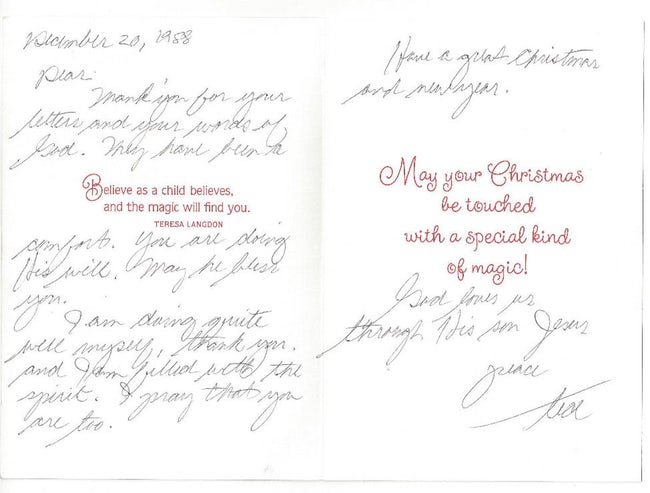 December 20, 1988
Dear:
Thank you for your
letters and your words of
God. They have been a
Believe as a child believes,
and the magic will find you.
TERESA LANGDON
comfort. You are doing
His will. May he bless
you.
I am doing quite
well myself, thank you.
and I am filled with the
spirit. I pray that you
are too.
Have a great Christmas
and new year.
May your Christmas
be touched
with a special kind
of magic!
God loves us
through His son Jesus
peace
ted